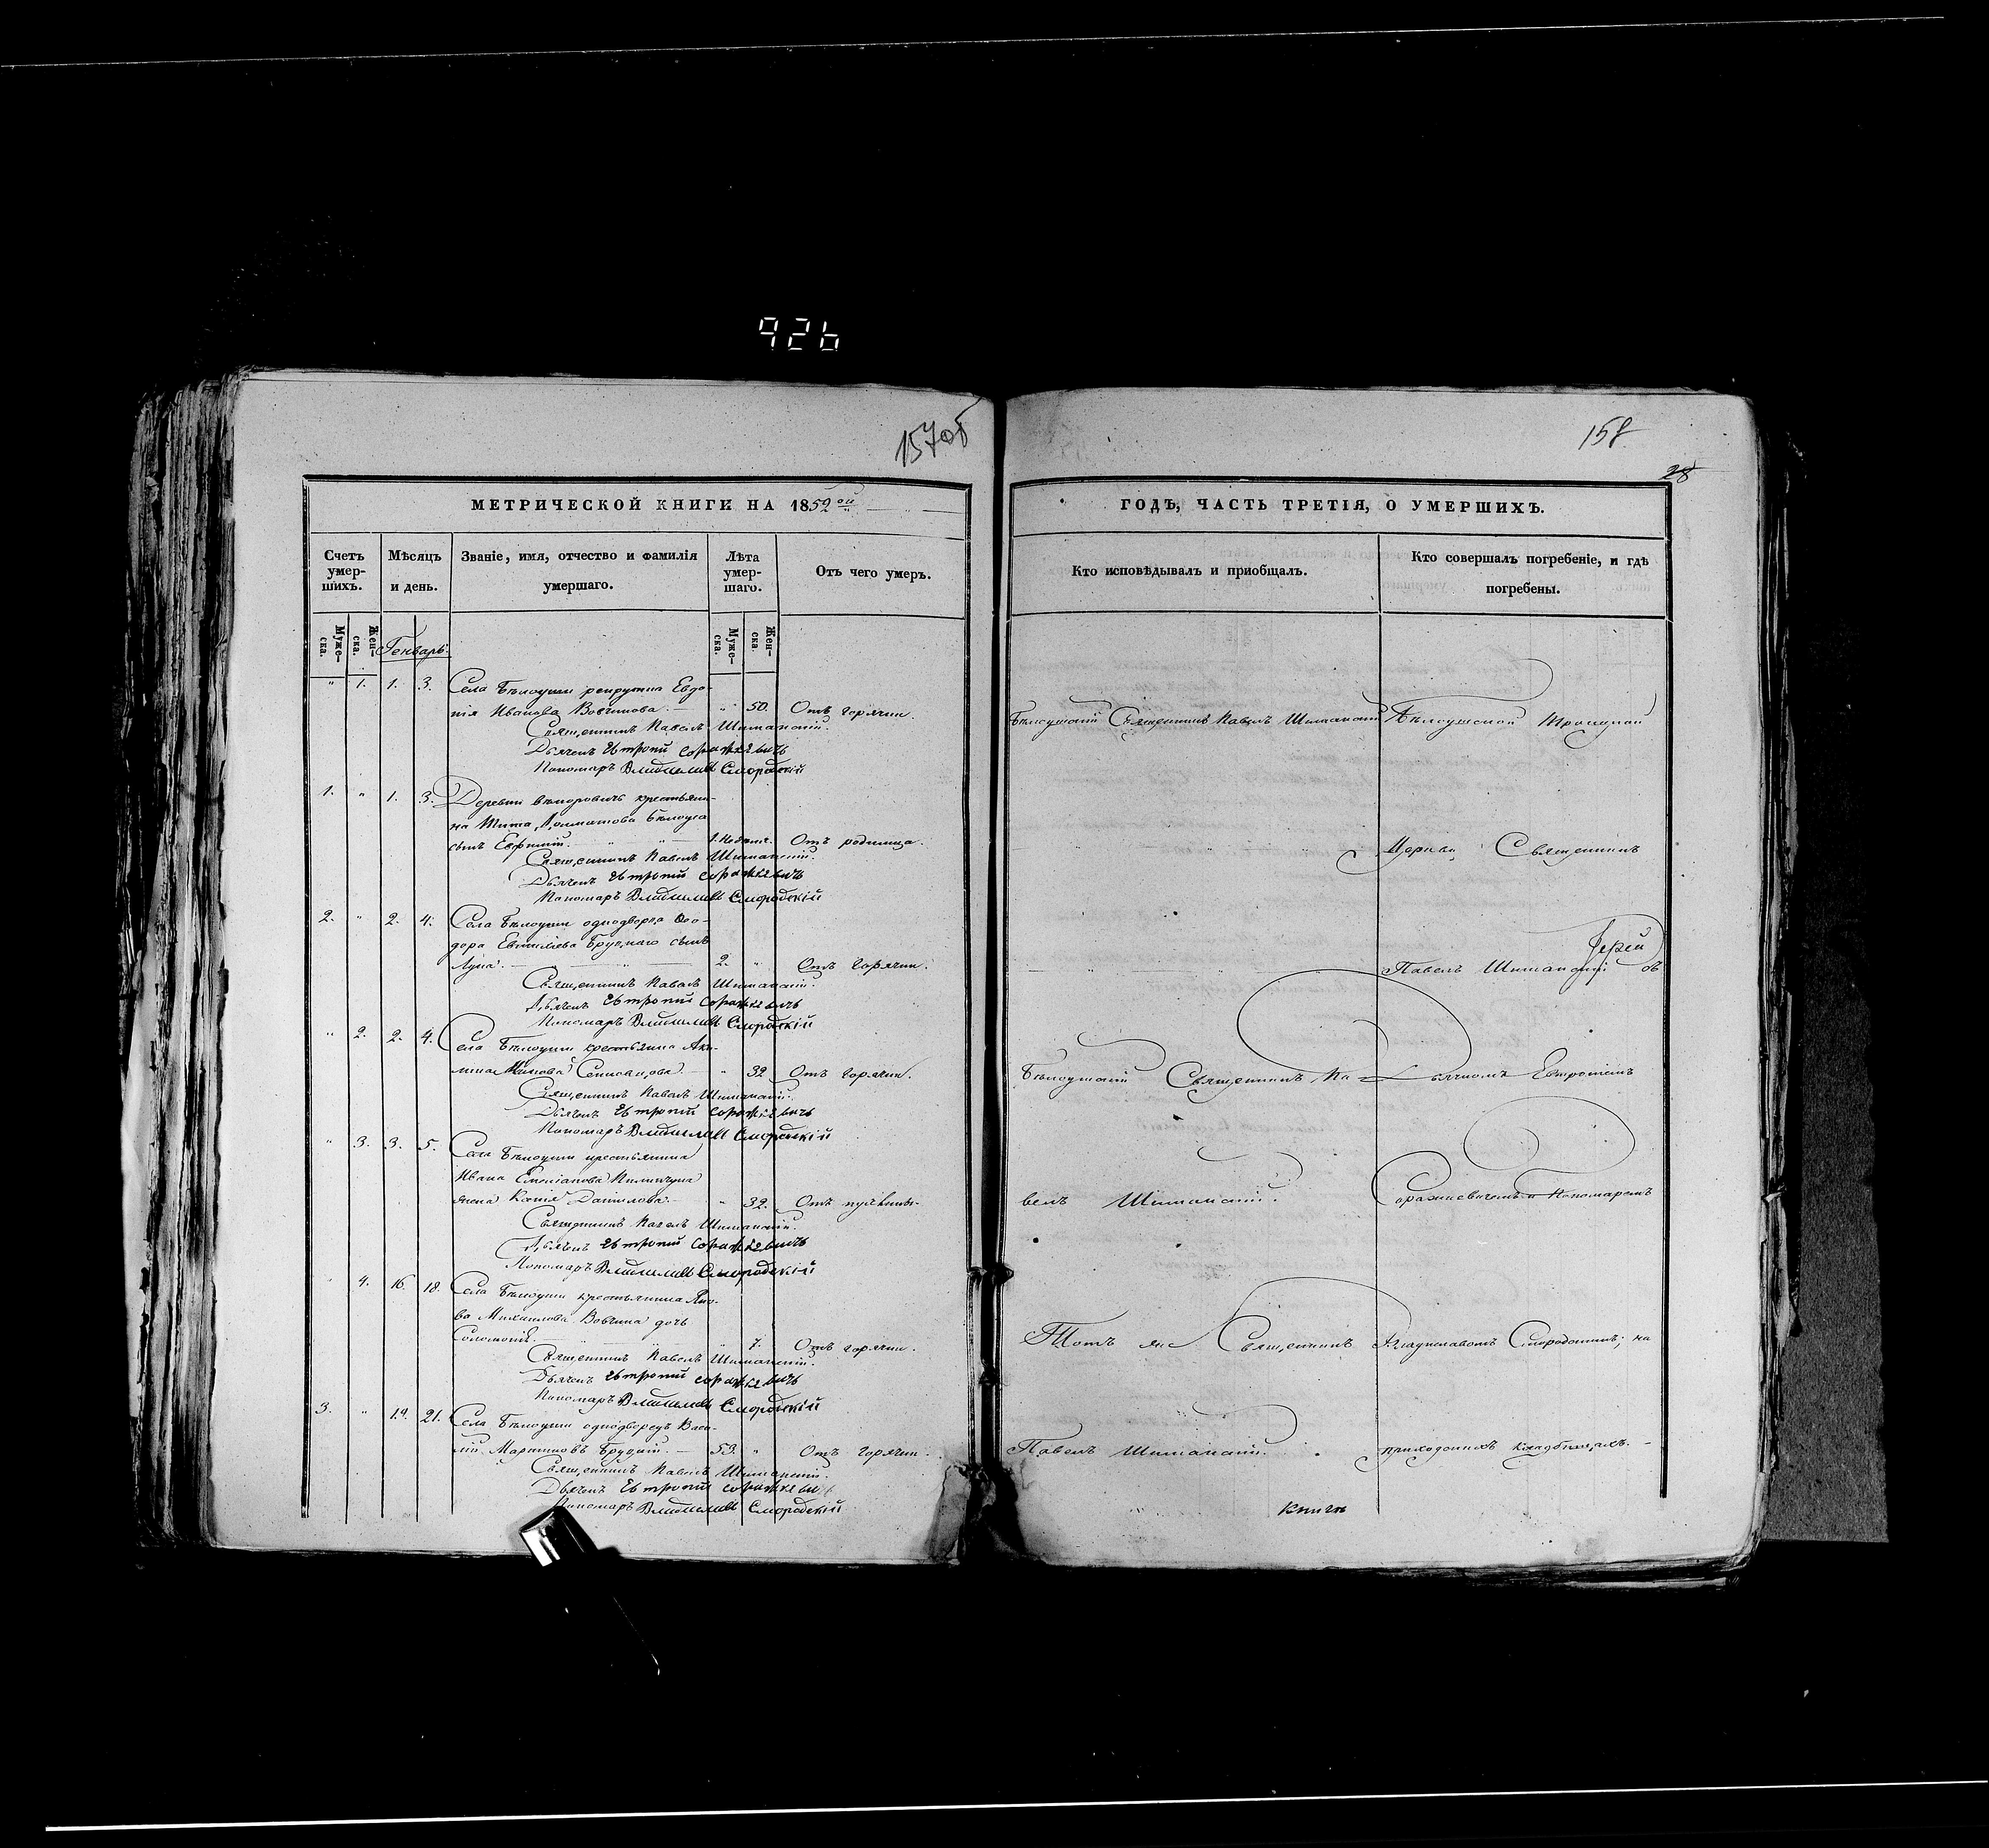 926
157об
МЕТРИЧЕСКОЙ КНИГИ НА 1852ой
Счетъ умер-шихъ.
Мѣсяцъ и день.
Званіе, имя, отчество и фамилія умершаго.
Лѣта умер-шаго.
Отъ чего умеръ.
Муже-ска.
Жен-ска.
Генварь.
Муже-ска.
Жен-ска.
" 1. 1. 3. Села Бѣлоуши рекрутка Евдо-
кія Иванова Вовчинова. — " 50. Отъ горячки.
Священникъ Павелъ Шиманскій.
Дьячекъ Евтропій Соражкевичъ
Пономарь Владиславъ Смородскій
1. " 1. 3. Деревни крестьяни-
на Тита Бѣлоуса
сынъ Евфимій. 1. недѣля. Отъ родимца.
Священникъ Павелъ Шиманскій.
Дьячекъ Евтропій Соражкевичъ
Пономарь Владиславъ Смородскій
2. " 2. 4. Села Бѣлоуши однодворца Ѳео-
дора Евтихіева Бруцкаго сынъ
Лука. — 2. " Отъ горячки.
Священникъ Павелъ Шиманскій.
Дьячекъ Евтропій Соражкевичъ
Пономарь Владиславъ Смородскій
" 2. 2. 4. Села Бѣлоуши крестьянка Аки-
лина — " 32 Отъ горячки.
Священникъ Павелъ Шиманскій.
Дьячекъ Евтропій Соражкевичъ
Пономарь Владиславъ Смородскій
" 3. 3. 5. Села Бѣлоуши крестьянина
Ивана Емеліанова
жена Ксенія Данилова. — " 32. Отъ
Священникъ Павелъ Шиманскій.
Дьячекъ Евтропій Соражкевичъ
Пономарь Владиславъ Смородскій
" 4. 16. 18. Села Бѣлоуши крестьянина Яко-
ва Михайлова Вовчина дочь
Соломонія. — " 7. Отъ горячки.
Священникъ Павелъ Шиманскій.
Дьячекъ Евтропій Соражкевичъ
Пономарь Владиславъ Смородскій
3. " 19. 21. Села Бѣлоуши однодворецъ Васи-
лій Мартиновъ Бруцкій. — 53. " Отъ горячки.
Священникъ Павелъ Шиманскій.
Дьячекъ Евтропій Соражкевичъ
Пономарь Владиславъ Смородскій
158
28
ГОДЪ, ЧАСТЬ ТРЕТІЯ, О УМЕРШИХЪ.
Кто исповѣдывалъ и приобщалъ.
Кто совершалъ погребеніе, и гдѣ погребены.
Бѣлоушскій Священникъ Павелъ Шиманскій
Бѣлоушской Троицкой
Церкви Священникъ
Іерей
Павелъ Шиманскій съ
Бѣлоушскій Священникъ Па-
Дьячкомъ Евтропіемъ
велъ Шиманскій.
Соражкевичемъ и Пономаремъ
Тотъ же Священникъ
Владиславомъ Смородскимъ, на
Павелъ Шиманскій.
приходскихъ кладбищахъ. —
книгѣ